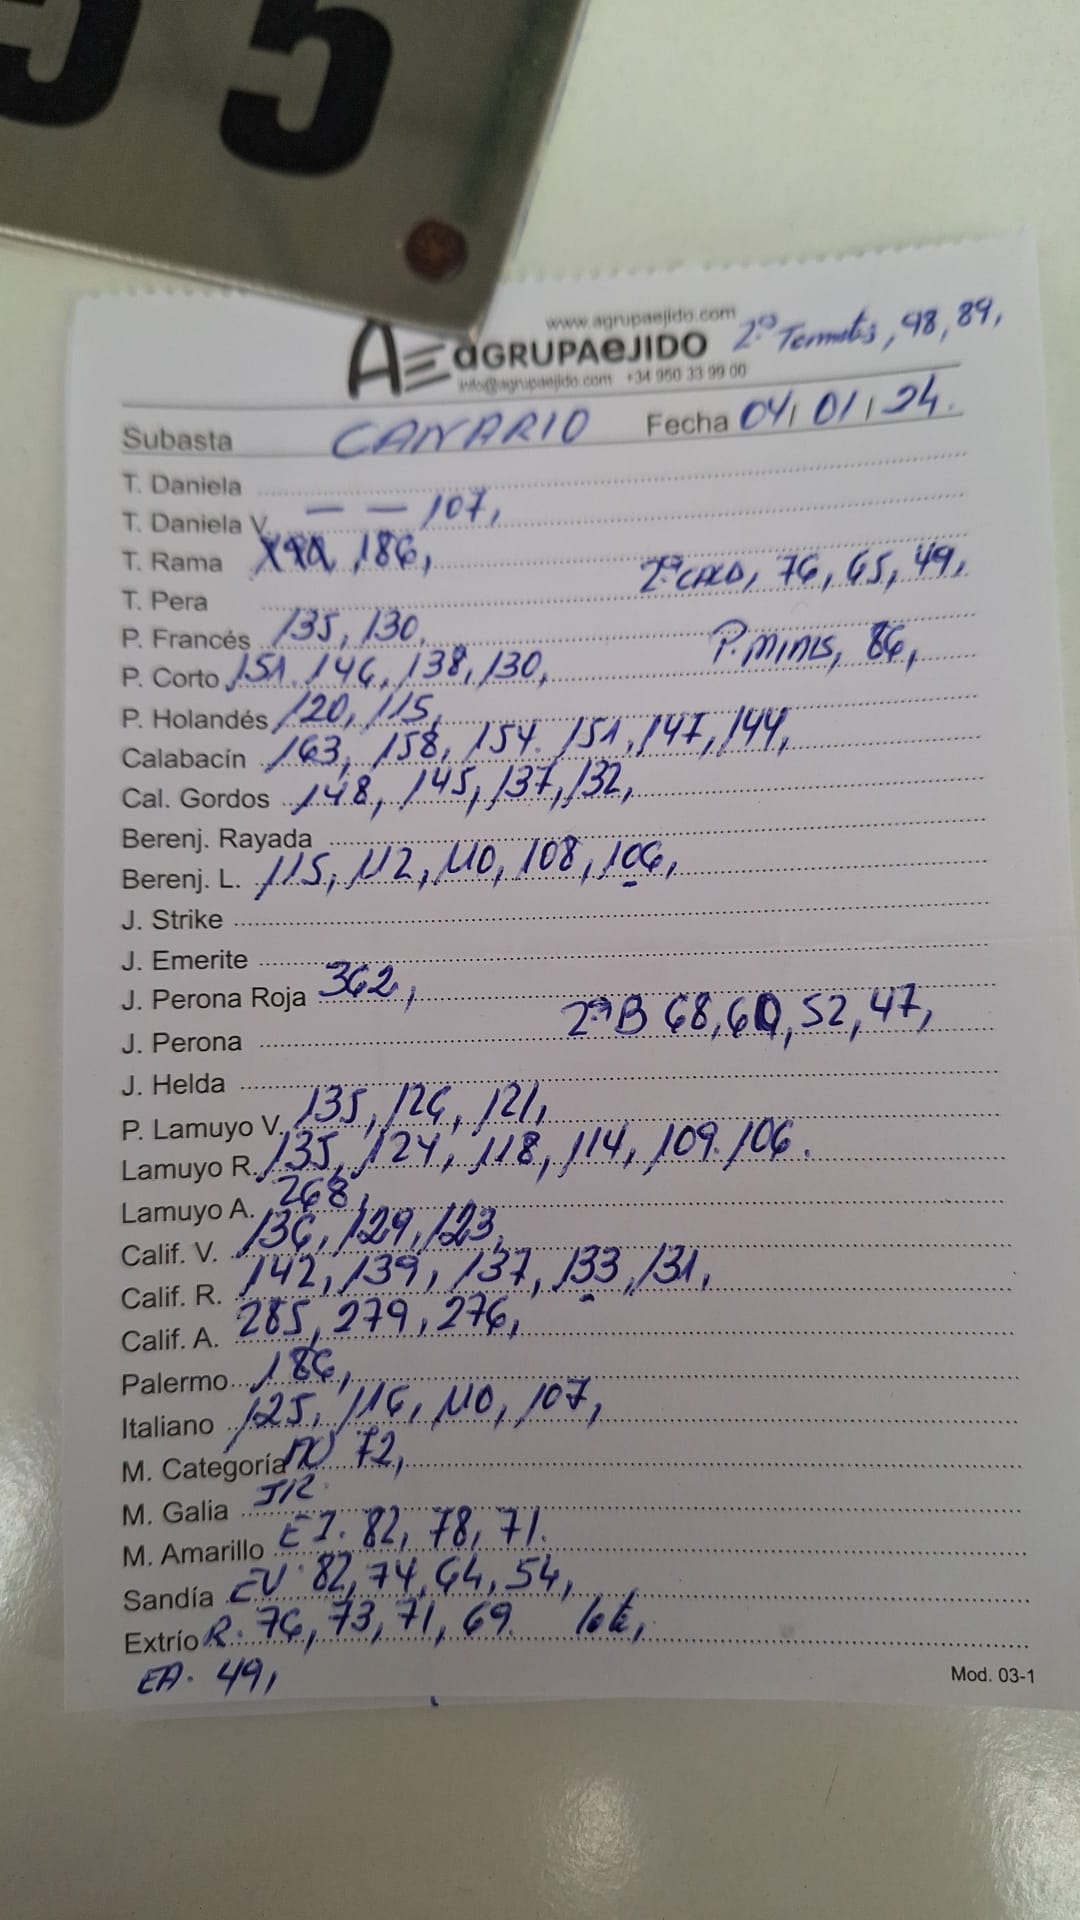 55
www.agrupaejido.com
AGRUPAEJIDO 2ª Termets, 98, 89,
info@agrupaejido.com +34 950 33 99 00
Subasta CANARIO Fecha 04/01/24.
T. Daniela
T. Daniela V. — — 107,
T. Rama 186,
T. Pera 2ª CALD, 76, 65, 49,
P. Francés 135, 130,
P. Corto 151. 146, 138, 130, P. MINIS, 86,
P. Holandés 120, 115,
Calabacín 163, 158, 154. 151, 147, 144,
Cal. Gordos 148, 145, 137, 132,
Berenj. Rayada
Berenj. L. 115, 112, 110, 108, 106,
J. Strike
J. Emerite
J. Perona Roja 362,
J. Perona 2ª B 68, 60, 52, 47,
J. Helda
P. Lamuyo V. 135, 126, 121,
Lamuyo R. 135, 124, 118, 114, 109. 106.
Lamuyo A. 268,
Calif. V. 136, 129, 123,
Calif. R. 142, 139, 137, 133, 131,
Calif. A. 285, 279, 276,
Palermo 186,
Italiano 125, 116, 110, 107,
M. Categoría 72,
M. Galia JR.
M. Amarillo EI. 82, 78, 71.
Sandía EV. 82, 74, 64, 54,
Extrío R. 76, 73, 71, 69. lote,
EA. 49,
Mod. 03-1